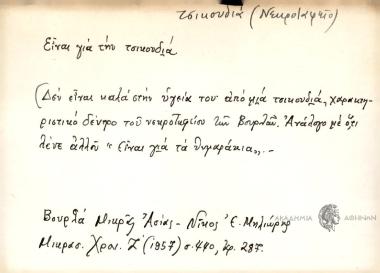 τσικουδιά (Νεκροταφείο)
Είναι γιά τήν τσικουδιά
(Δέν εἶναι καλά στήν ὑγεία του· ἀπό μιά τσικουδιά, χαρακτη-
ριστικό δέντρο τοῦ νεκροταφείου τῶν Βουρλῶν. Ἀνάλογο μέ ὅ,τι
λένε ἀλλοῦ "Εἶναι γιά τά θυμαράκια„.-
Βουρλά Μικρᾶς Ἀσίας - Νῖκος Ε. Μηλιώρης
Μικρασ. Χρον. Ζ' (1957) σ. 440, ἀρ. 287.
ΑΚΑΔΗΜΙΑ ΑΘΗΝΩΝ